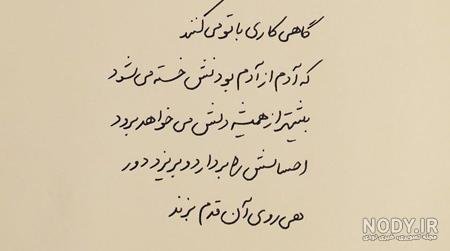 گاهی کاری با تو می‌کنند
که آدم از آدم بودنش خسته می‌شود
بیشتر از همیشه دلش می‌خواهد برود
احساسش را بردارد و بریزد دور
هی روی آن قدم بزند
NODY.IR
مجله تصویری، خبری نودی